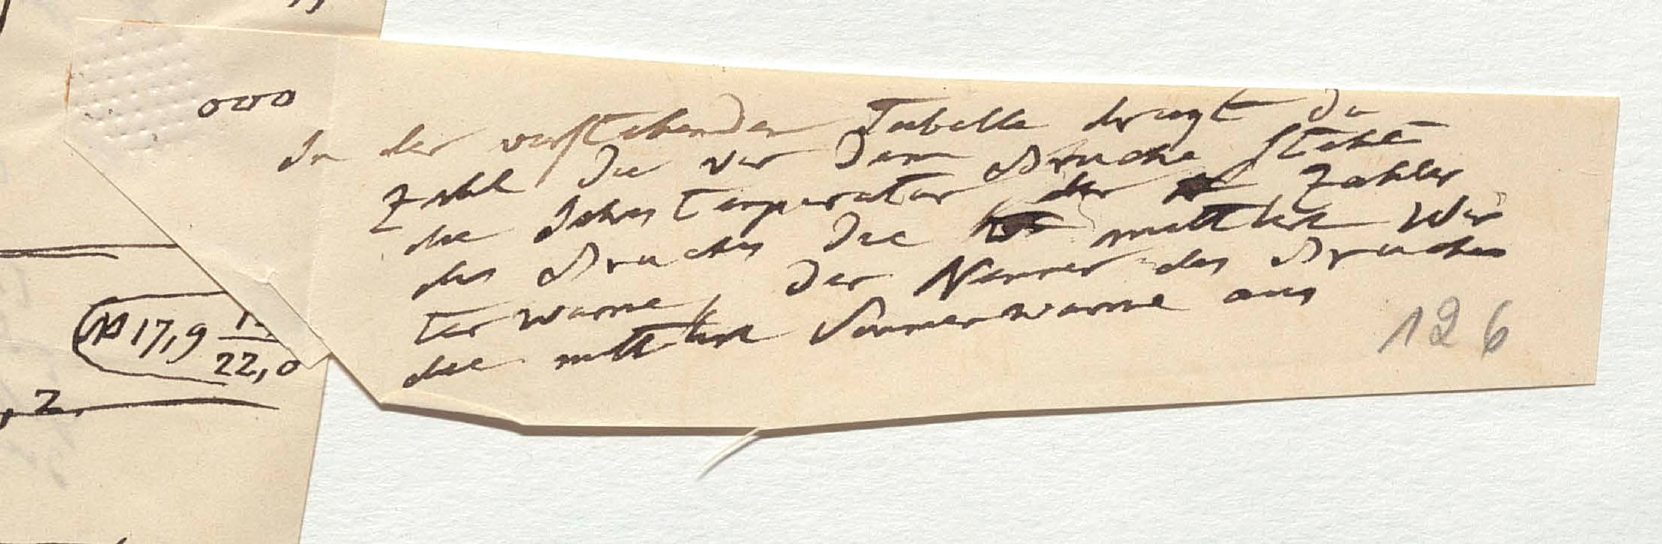 000
In der vorstehenden Tabelle drugt die
Zahl die vor dem Bruche steht
die Jahres Temperatur der Zahler
des Bruches die mittlere Win
ter warme, der Nenner des Bruches
die mittlere Sommerwarme aus
17,9
22,0
2.
126